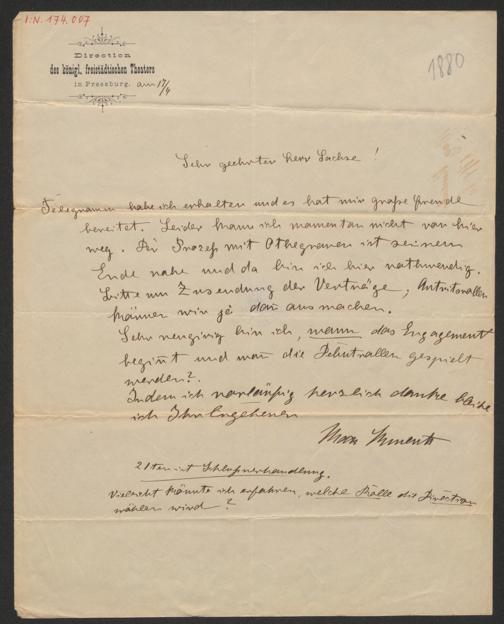 I.N. 174.007
1880
Direction
des königl. freistädtischen Theaters
in Pressburg. am 17/4
Sehr geehrter Herr Sachse!
Telegramm habe ich erhalten und es hat mir große Freude
bereitet. Leider kann ich momentan nicht von hier
weg. Der Prozeß mit ist seinem
Ende nahe und da bin ich hier nothwendig.
Bitte um Zusendung der Verträge; Antrittsrollen
können wir ja dann ausmachen.
Sehr neugirig bin ich, wann das Engagement
begint und wan die Debutrollen gespielt
werden?.
Indem ich vorläufig herzlich danke bleibe
ich Ihr Ergebener
Max
21ten ist Schlußverhandlung.
Vielleicht könnte ich erfahren, welche Rolle die Direction
wählen wird?